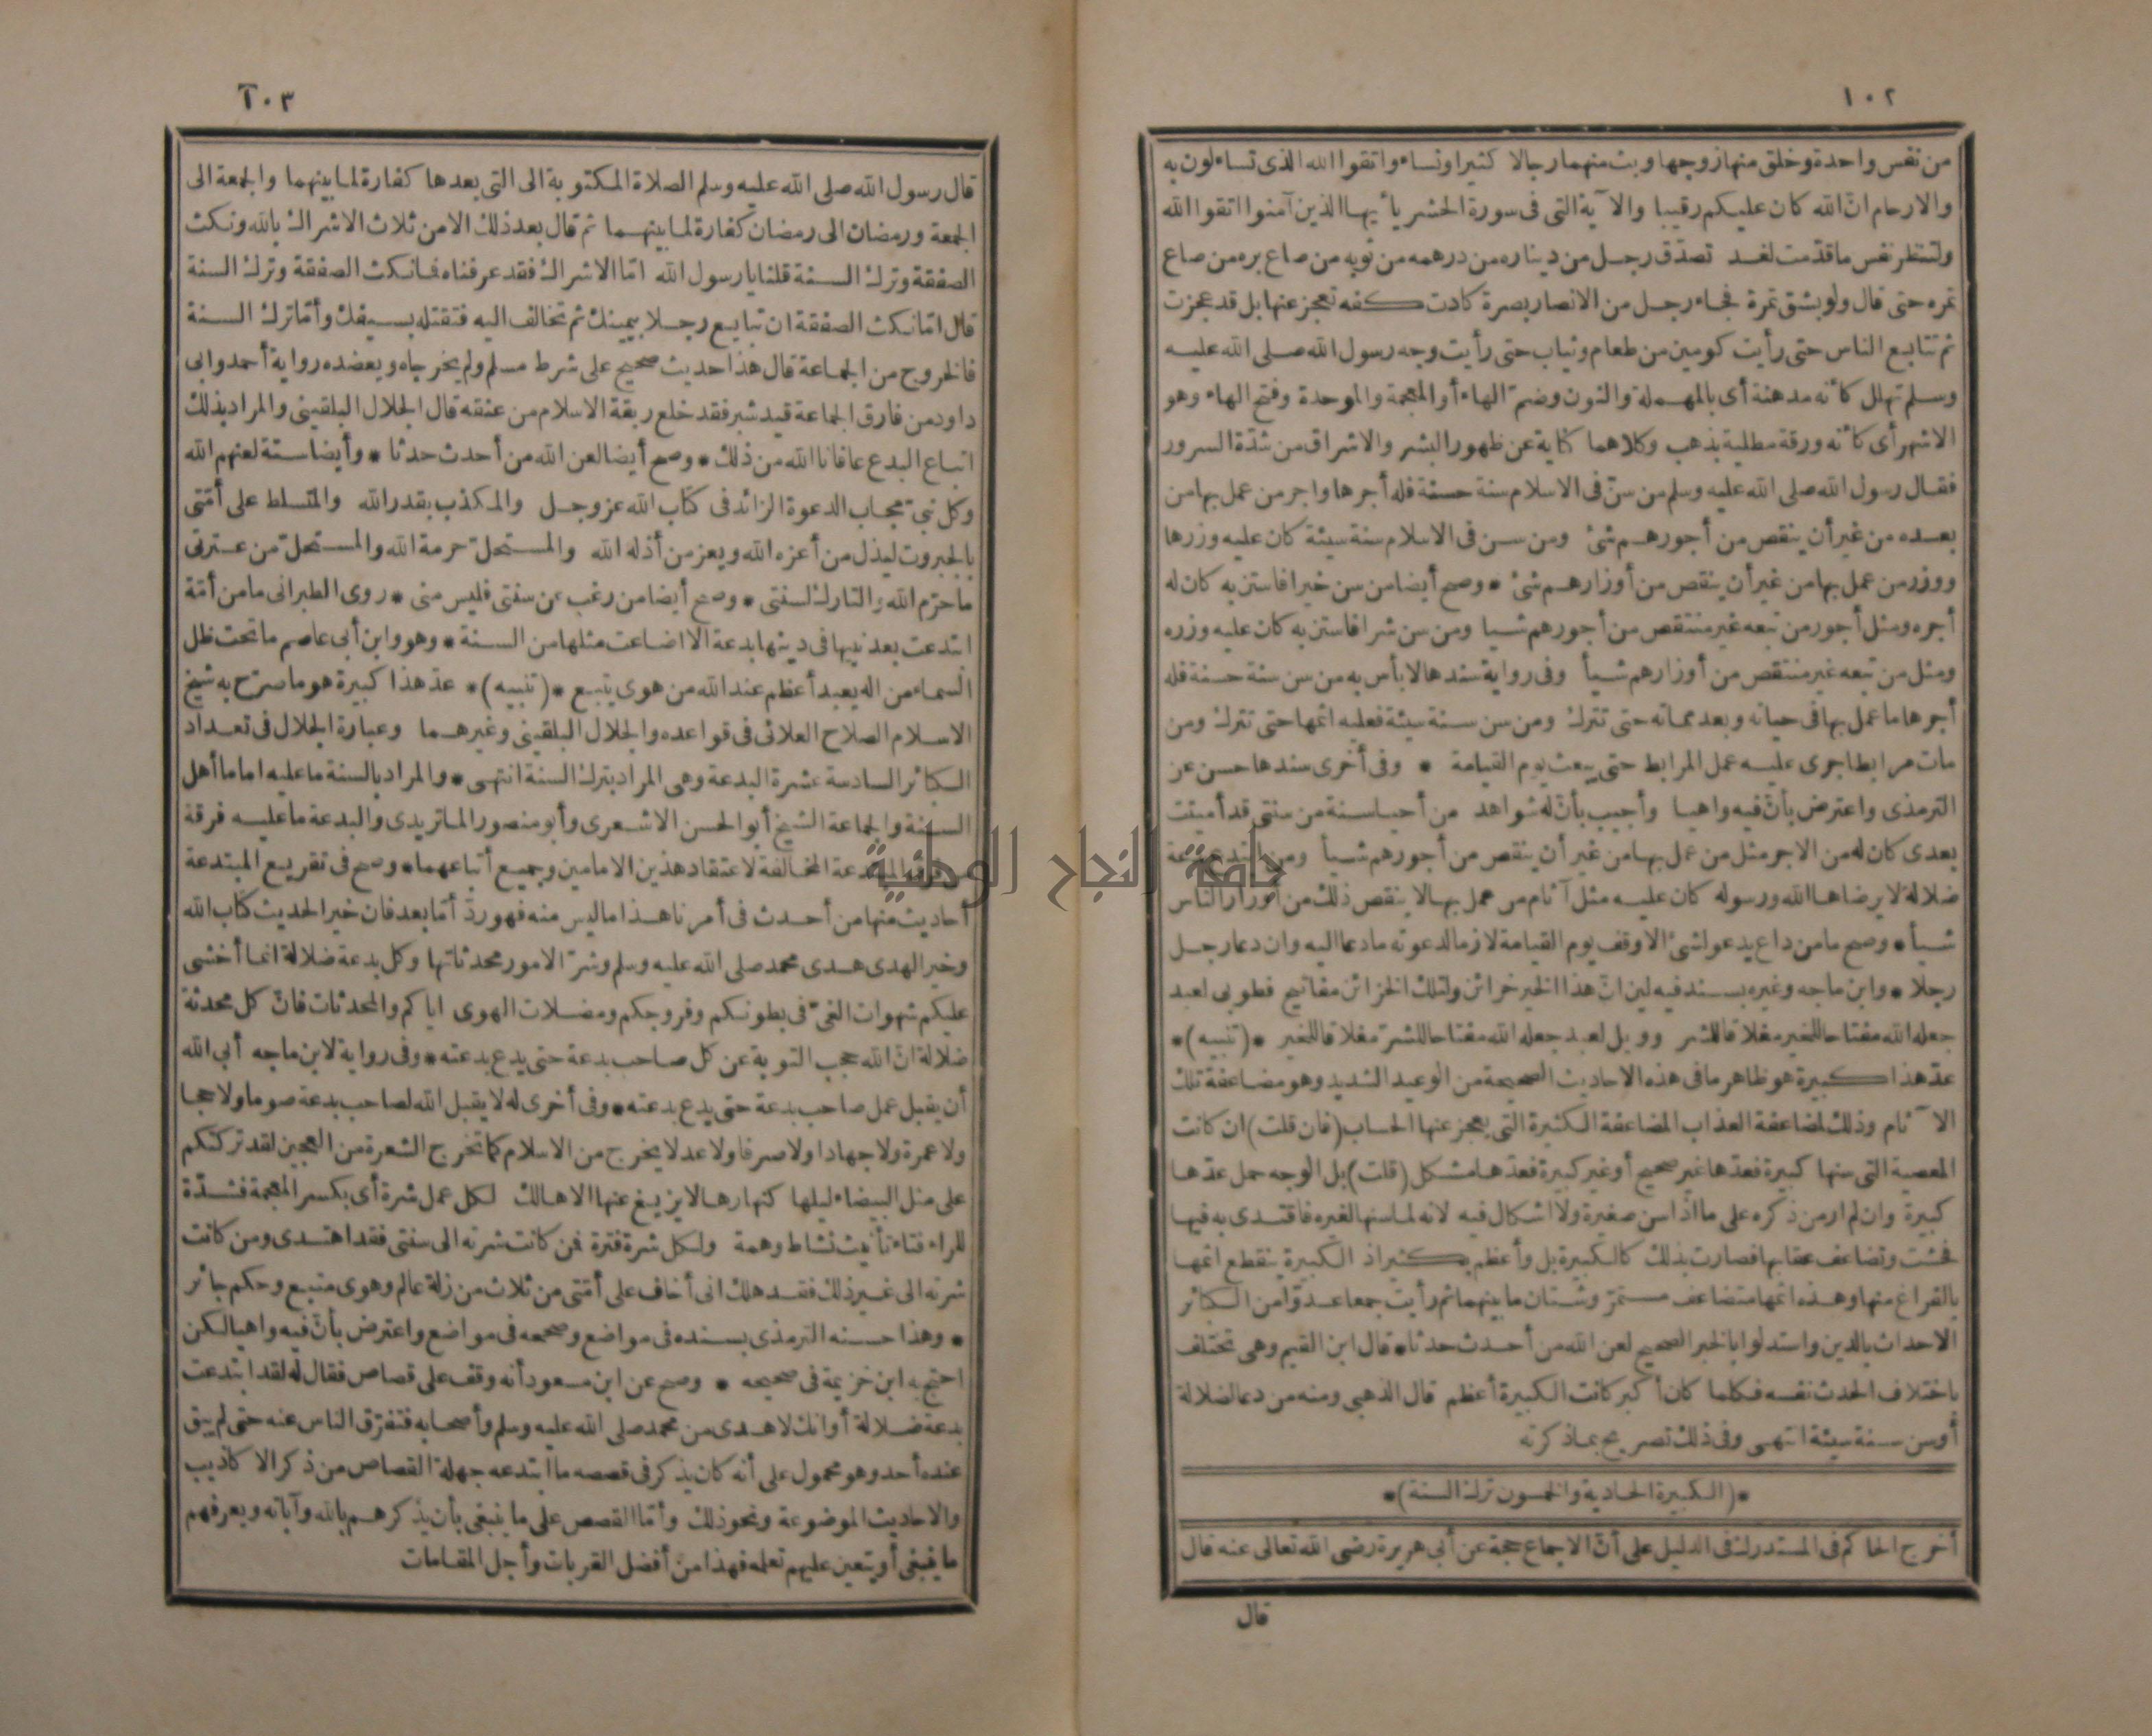 ١٠٢
من نفس واحدة وخلق منها زوجها وبث منهما رجالا كثيرا ونساء واتقوا الله الذى تساءلون به
والارحام انّ الله كان عليكم رقيبا والآية التى فى سورة الحشر ياأيها الذين آمنوا اتقوا الله
ولتنظر نفس ما قدّمت لغد تصدّق رجل من ديناره من درهمه من ثوبه من صاع بره من صاع
تمره حتى قال ولو بشق تمرة فجاء رجل من الانصار بصرة كادت كفه تعجز عنها بل قد عجزت
ثم تتابع الناس حتى رأيت كومين من طعام وثياب حتى رأيت وجه رسول الله صلى الله عليه
وسلم تهلل كأنه مدهنة أى بالمهملة والنون وضم الهاء أو المعجمة والموحدة وفتح الهاء وهو
الاشهر أى كأنه ورقة مطلية بذهب وكلاهما كناية عن ظهور البشر والاشراق من شدّة السرور
فقال رسول الله صلى الله عليه وسلم من سنّ فى الاسلام سنة حسنة فله أجرها واجر من عمل بها من
بعده من غير أن ينقص من أجورهم شئ ومن سن فى الاسلام سنة سيئة كان عليه وزرها
ووزر من عمل بها من غير أن ينقص من أوزارهم شئ * وصح أيضا من سن خيرا فاستن به كان له
أجره ومثل أجور من تبعه غير منتقص من أجورهم شيا ومن سن شرا فاستن به كان عليه وزره
ومثل من تبعه غير منتقص من أوزارهم شيأ وفى رواية سندها لا بأس به من سن سنة حسنة فله
أجرها ما عمل بها فى حياته وبعد مماته حتى تترك ومن سن سنة سيئة فعليه اثمها حتى تترك ومن
مات مرابطا جرى عليه عمل المرابط حتى يبعث يوم القيامة * وفى أخرى سندها حسن عن
الترمذى واعترض بأنّ فيه واهيا وأجيب بأنّ له شواهد من أحيا سنة من سنتى قد أميتت
بعدى كان له من الاجر مثل من عمل بها من غير أن ينقص من أجورهم شيأ ومن ابتدع بدعة
ضلالة لا يرضاها الله ورسوله كان عليه مثل آثام من عمل بها لا ينقص ذلك من أوزار الناس
شيأ * وصح ما من داع يدعو لشئ الا وقف يوم القيامة لازما لدعوته ما دعا اليه وان دعا رجل
رجلا * وابن ماجه وغيره بسند فيه لين انّ هذا الخير خزائن ولتلك الخزائن مفاتيح فطوبى لعبد
جعله الله مفتاحا للخير مغلاقا للشر وويل لعبد جعله الله مفتاحا للشرّ مغلاقا للخير * (تنبيه) *
عدّ هذا كبيرة هو ظاهر ما فى هذه الاحاديث الصحيحة من الوعيد الشديد وهو مضاعفة تلك
الآثام وذلك لمضاعفة العذاب المضاعفة الكثيرة التى يعجز عنها الحساب (فان قلت) ان كانت
المعصية التى سنها كبيرة فعدّها غير صحيح أو غير كبيرة فعدّها مشكل (قلت) بل الوجه حمل عدّها
كبيرة وان لم ار من ذكره على ما اذا سن صغيرة ولا اشكال فيه لانه لما سنها لغيره فاقتدى به فيها
فحشت وتضاعف عقابها فصارت بذلك كالكبيرة بل وأعظم بكثير اذ الكبيرة ينقطع اثمها
بالفراغ منها وهذه اثمها متضاعف مستمرّ وشتان ما بينهما ثم رأيت جمعا عدّوا من الكبائر
الاحداث بالدين واستدلوا بالخبر الصحيح لعن الله من أحدث حدثا * قال ابن القيم وهى تختلف
باختلاف الحدث نفسه فكلما كان أكبر كانت الكبيرة أعظم قال الذهبى ومنه من دعا لضلالة
أو سن سنة سيئة انتهى وفى ذلك تصريح بما ذكرته
*(الكبيرة الحادية والخمسون ترك السنة)*
أخرج الحاكم فى المستدرك فى الدليل على أنّ الاجماع حجة عن أبى هريرة رضى الله تعالى عنه قال
قال
٢٠٣
قال رسول الله صلى الله عليه وسلم الصلاة المكتوبة الى التى بعدها كفارة لما بينهما والجمعة الى
الجمعة ورمضان الى رمضان كفارة لما بينهما ثم قال بعد ذلك الا من ثلاث الاشراك بالله ونكث
الصفقة وترك السنة قلنا يا رسول الله امّا الاشراك فقد عرفناه فما نكث الصفقة وترك السنة
قال امّا نكث الصفقة ان تبايع رجلا بيمينك ثم تخالف اليه فتقتله بسيفك وأمّا ترك السنة
فالخروج من الجماعة قال هذا حديث صحيح على شرط مسلم ولم يخرجاه ويعضده رواية أحمد وابى
داود من فارق الجماعة قيد شبر فقد خلع ربقة الاسلام من عنقه قال الجلال البلقينى والمراد بذلك
اتباع البدع عافانا الله من ذلك * وصح أيضا لعن الله من أحدث حدثا * وأيضا ستة لعنهم الله
وكل نبىّ مجاب الدعوة الزائد فى كتاب الله عز وجل والمكذب بقدر الله والمتسلط على أمّتى
بالجبروت ليذل من أعزه الله ويعز من أذله الله والمستحلّ حرمة الله والمستحلّ من عترتى
ما حرّم الله والتارك لسنتى * وصح أيضا من رغب عن سنتى فليس منى * روى الطبرانى ما من أمّة
ابتدعت بعد نبيها فى دينها بدعة الا اضاعت مثلها من السنة * وهو وابن أبى عاصم ما تحت ظل
السماء من اله يعبد أعظم عند الله من هوى يتبع *(تنبيه)* عدّ هذا كبيرة هو ما صرّح به شيخ
الاسلام الصلاح العلائى فى قواعده والجلال البلقينى وغيرهما وعبارة الجلال فى تعداد
الكبائر السادسة عشرة البدعة وهى المراد بترك السنة انتهى * والمراد بالسنة ما عليه اماما أهل
السنة والجماعة الشيخ أبو الحسن الاشعرى وأبو منصور الماتريدى والبدعة ما عليه فرقة
من فرق المبتدعة المخالفة لاعتقاد هذين الامامين وجميع أتباعهما * وصح فى تقريع المبتدعة
أحاديث منها من أحدث فى أمرنا هذا ما ليس منه فهو ردّ أمّا بعد فان خير الحديث كتاب الله
وخير الهدى هدى محمد صلى الله عليه وسلم وشرّ الامور محدثاتها وكل بدعة ضلالة انما أخشى
عليكم شهوات الغىّ فى بطونكم وفروجكم ومضلات الهوى اياكم والمحدثات فانّ كل محدثة
ضلالة انّ الله حجب التوبة عن كل صاحب بدعة حتى يدع بدعته * وفى رواية لابن ماجه أبى الله
أن يقبل عمل صاحب بدعة حتى يدع بدعته * وفى أخرى له لا يقبل الله لصاحب بدعة صوما ولا حجا
ولا عمرة ولا جهادا ولا صرفا ولا عدلا يخرج من الاسلام كما تخرج الشعرة من العجين لقد تركتكم
على مثل البيضاء ليلها كنهارها لا يزيغ عنها الا هالك لكل عمل شرة أى بكسر المعجمة فشدّة
للراء فتاء تأنيث نشاط وهمة ولكل شرة فترة فمن كانت شرته الى سنتى فقد اهتدى ومن كانت
شرته الى غير ذلك فقد هلك انى أخاف على أمّتى من ثلاث من زلة عالم وهوى متبع وحكم جائر
* وهذا حسنه الترمذى بسنده فى مواضع وصححه فى مواضع واعترض بأنّ فيه واهيا لكن
احتج به ابن خزيمة فى صحيحه * وصح عن ابن مسعود أنه وقف على قصاص فقال له لقد ابتدعت
بدعة ضلالة أو انك لاهدى من محمد صلى الله عليه وسلم وأصحابه فتفرّق الناس عنه حتى لم يبق
عنده أحد وهو محمول على أنه كان يذكر فى قصصه ما ابتدعه جهلة القصاص من ذكر الاكاذيب
والاحاديث الموضوعة ونحو ذلك وأمّا القصص على ما ينبغى بأن يذكرهم بالله وآياته ويعرفهم
ما ينبغى أو يتعين عليهم تعلمه فهذا من أفضل القربات وأجل المقامات
جامعة النجاح الوطنية